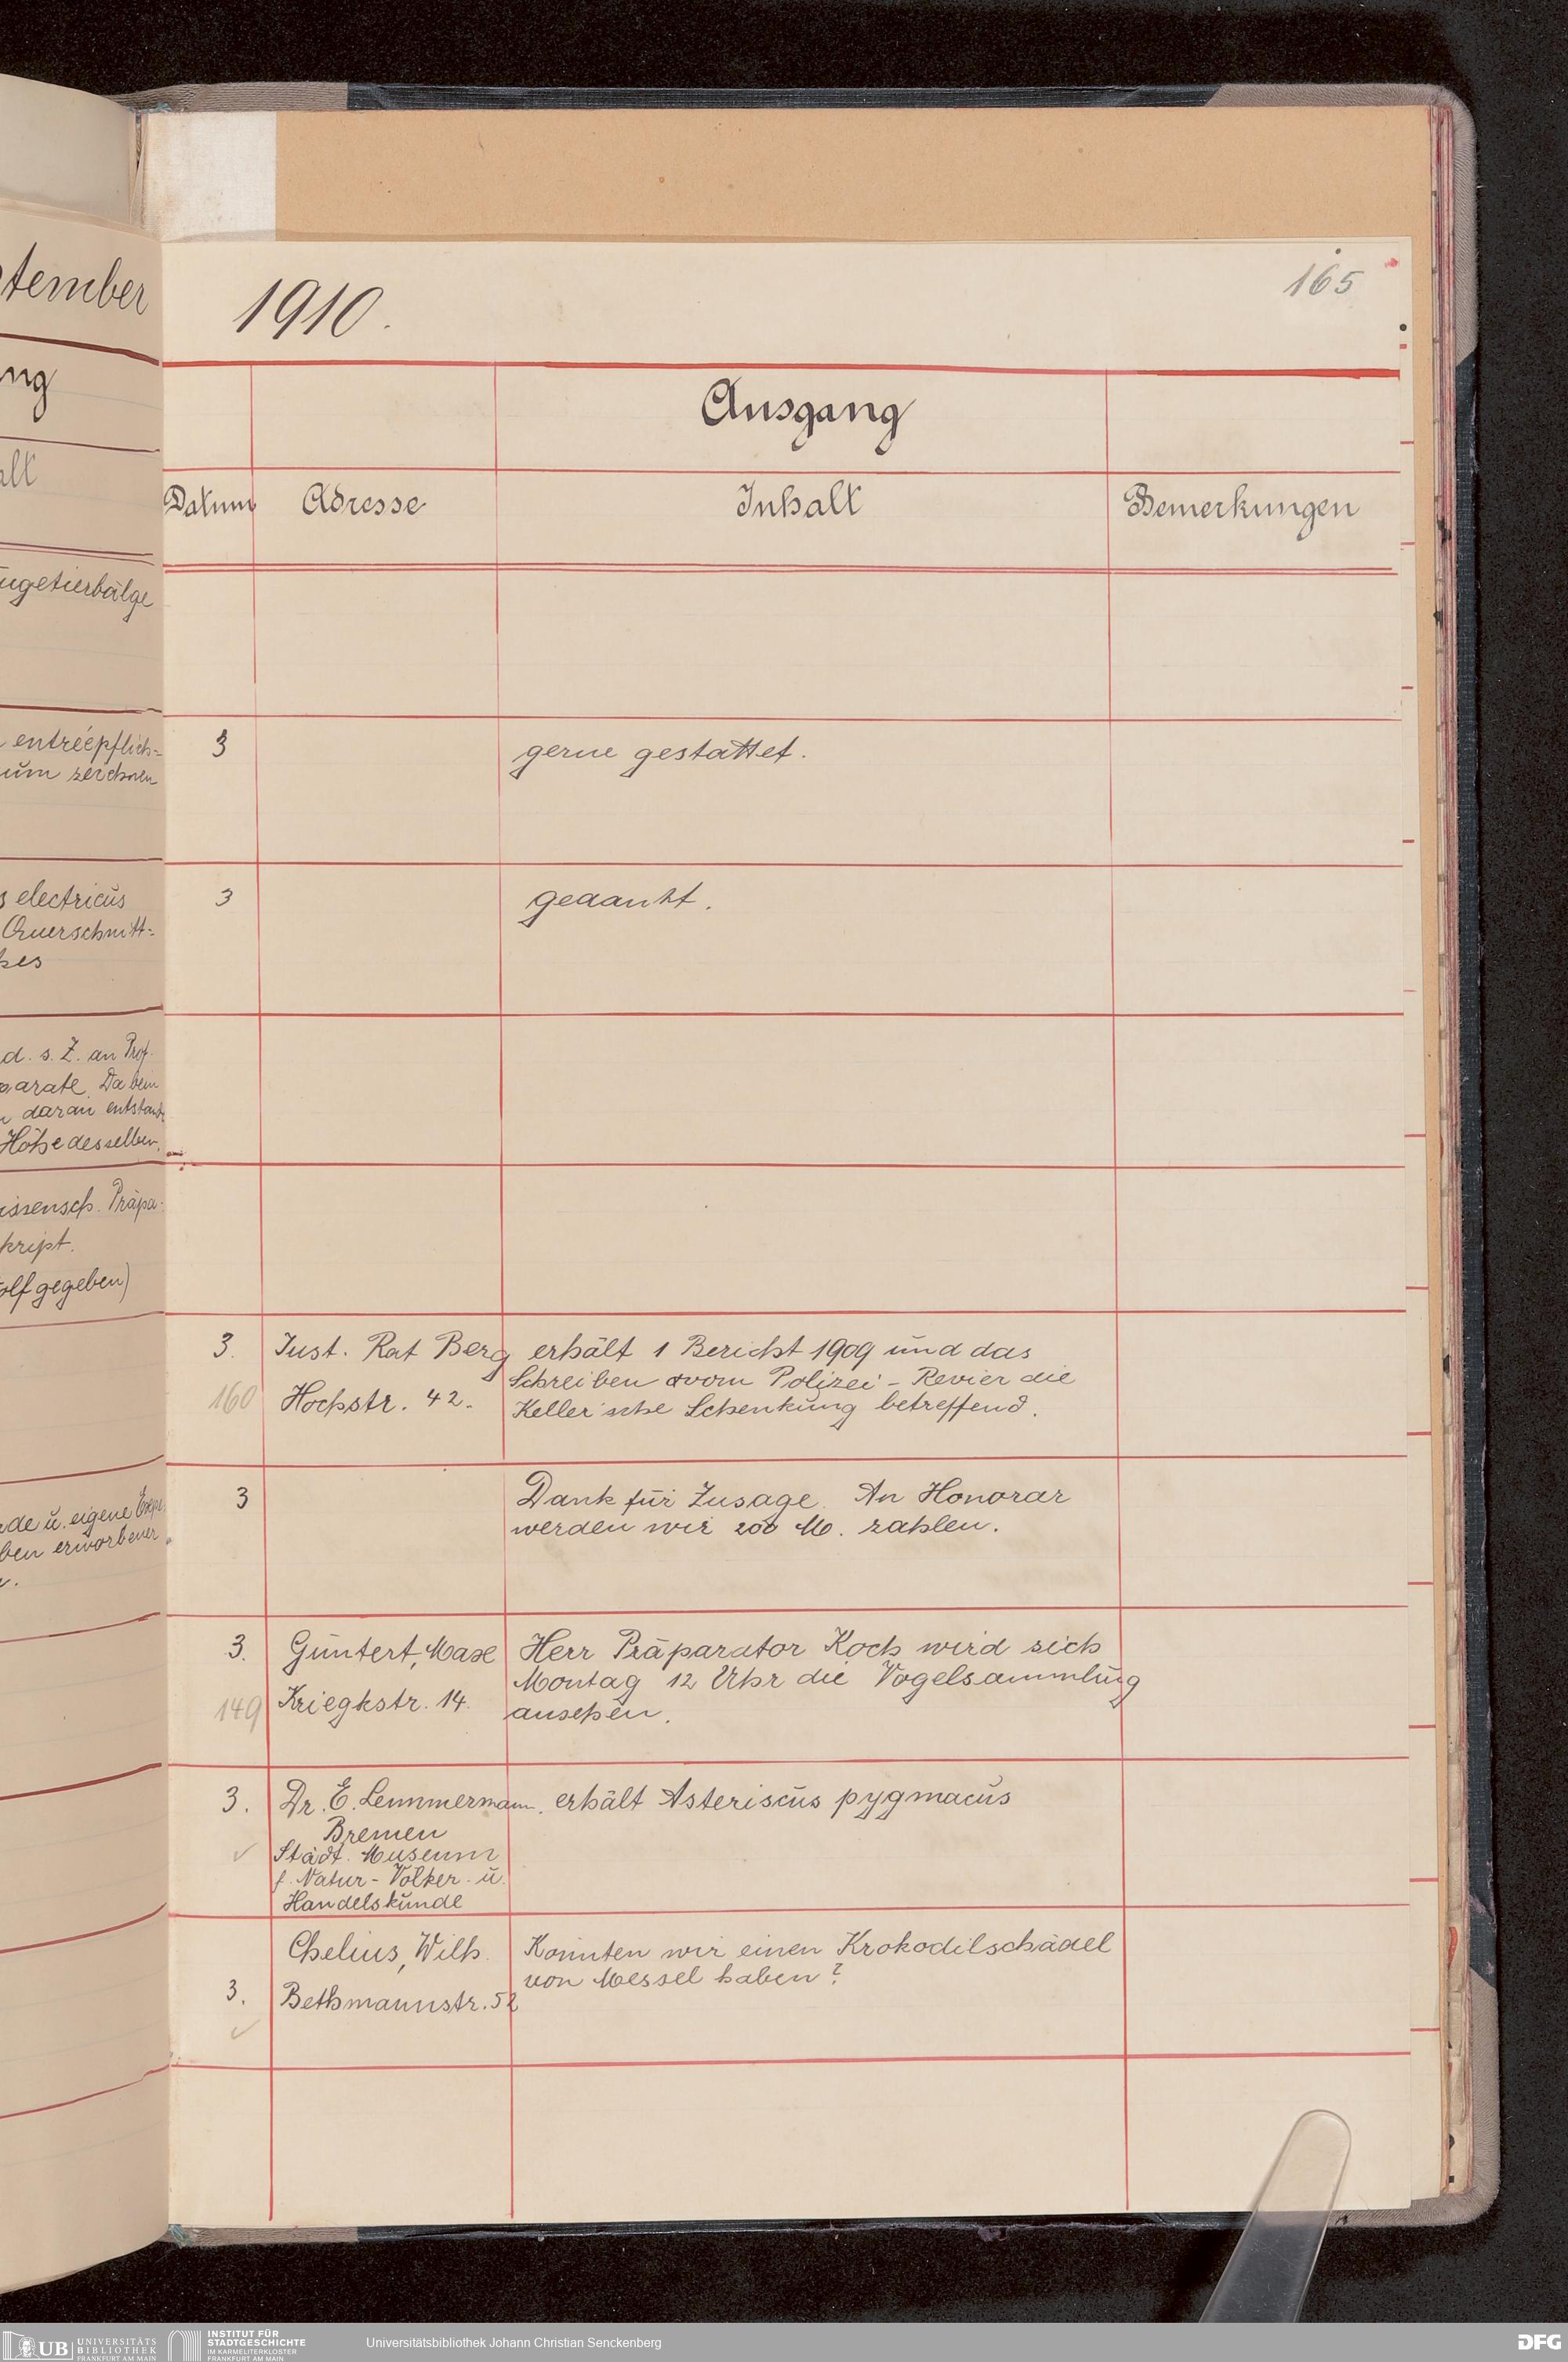 tember
ng
alt
ugetierbälge
entréepflich-
um zeichnen
s electricus
Querschnitt-
kes
d. s. Z. an Prof.
parate. Da beim
daran entstand
Höhe desselben.
issensch. Präpa-
kript.
olf gegeben)
de u. eigene Expe
ben erworbener
1910.
165
Ausgang
Datum Adresse Inhalt Bemerkungen
3 gerne gestattet.
3 gedankt.
3. Just. Rat Berg erhält 1 Bericht 1909 und das
Schreiben vom Polizei-Revier die
160 Hochstr. 42. Keller'sche Schenkung betreffend.
3 Dank für Zusage. An Honorar
werden wir 200 M. zahlen.
3. Güntert, Max Herr Präparator Koch wird sich
Montag 12 Uhr die Vogelsammlung
149 Kriegkstr. 14. ansehen.
3. Dr. E. Lemmermann. erhält Asteriscus pygmaeus
Bremen
Städt. Museum
f. Natur- Völker- u.
Handelskunde
Chelius, Wilh. Könnten wir einen Krokodilschädel
von Messel haben?
3. Bethmannstr. 52
UB UNIVERSITÄTS
BIBLIOTHEK
FRANKFURT AM MAIN
INSTITUT FÜR
STADTGESCHICHTE
IM KARMELITERKLOSTER
FRANKFURT AM MAIN
Universitätsbibliothek Johann Christian Senckenberg
DFG